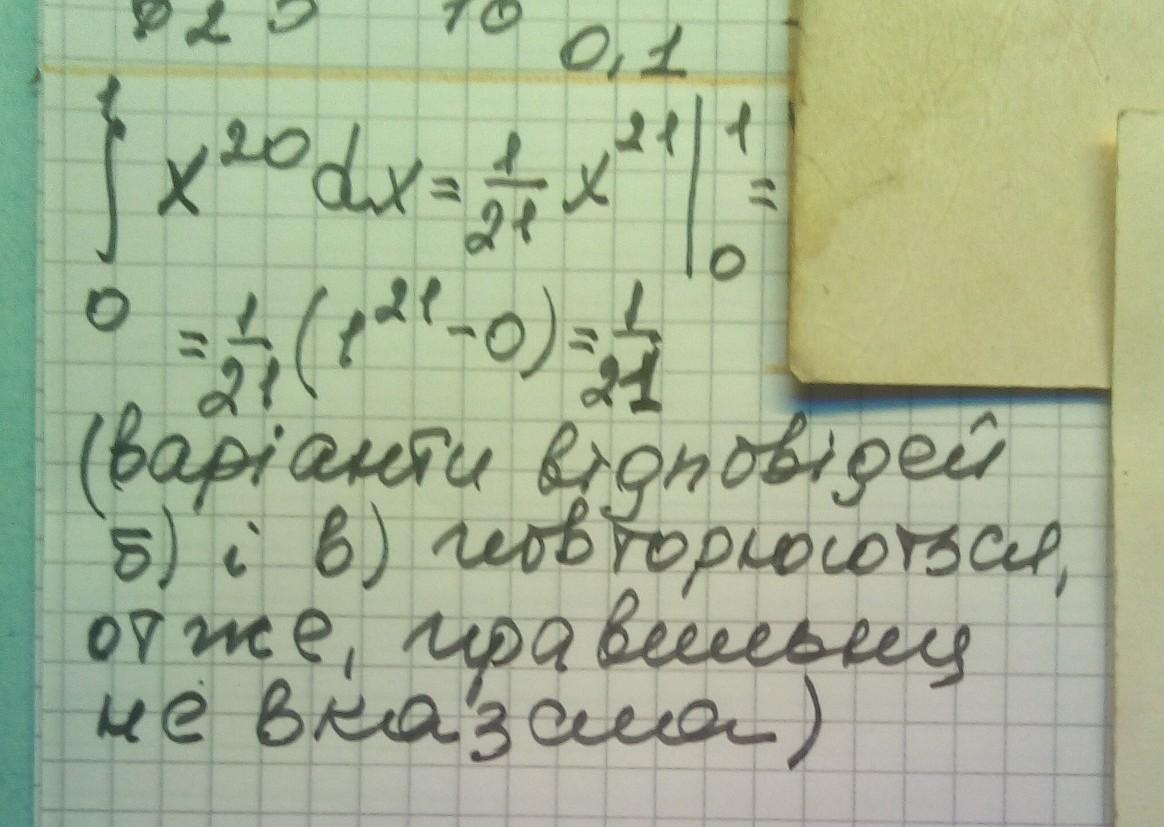 10
0,1
∫₀¹ x²⁰dx = 1/21 x²¹ |₀¹ =
= 1/21 (1²¹ - 0) = 1/21
(варіанти відповідей
б) і в) повторюються,
отже, правильну
не вказала)